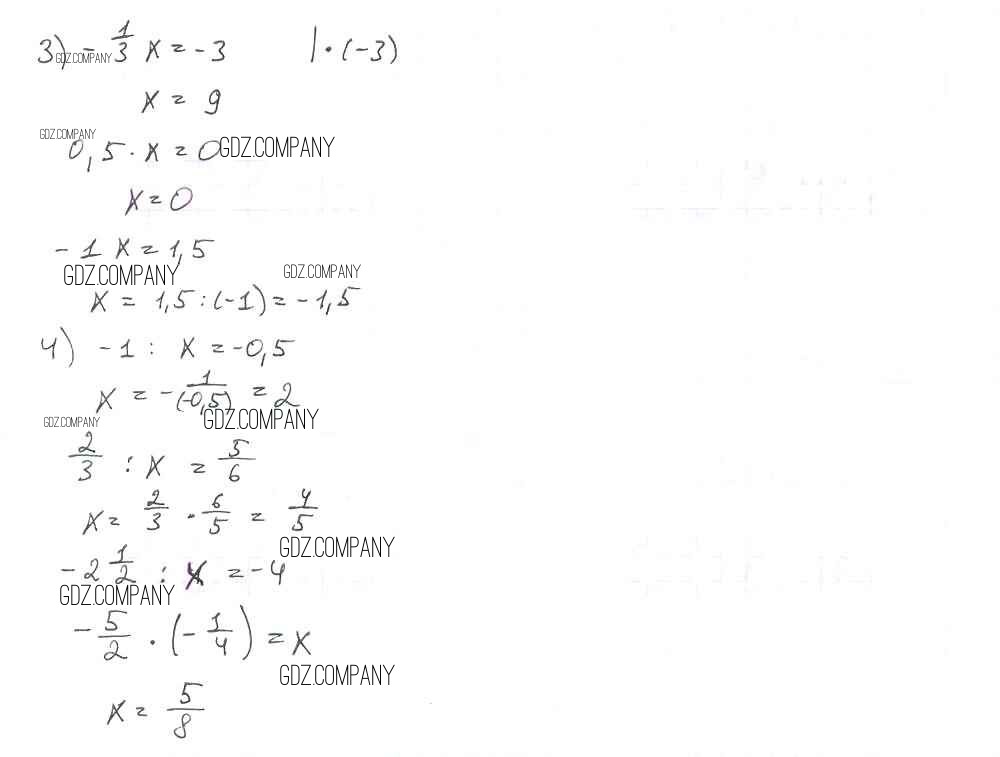 3) - 1/3 x = -3 | · (-3)
GDZ.COMPANY
x = 9
GDZ.COMPANY
0,5 · x = 0 GDZ.COMPANY
x = 0
- 1 x = 1,5
GDZ.COMPANY GDZ.COMPANY
x = 1,5 : (-1) = -1,5
4) -1 : x = -0,5
x = - 1/(-0,5) = 2
GDZ.COMPANY GDZ.COMPANY
2/3 : x = 5/6
x = 2/3 · 6/5 = 4/5
GDZ.COMPANY
-2 1/2 : x = -4
GDZ.COMPANY
- 5/2 · (- 1/4) = x
GDZ.COMPANY
x = 5/8